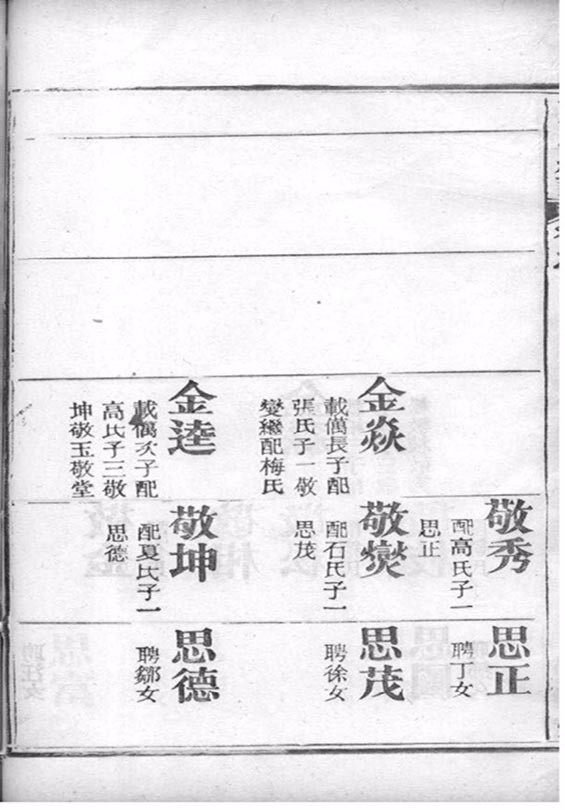 金焱
載長子配
張氏子一敬
燮繼配梅氏
金逵
載次子配
高氏子三敬
坤敬玉敬堂
敬秀
配高氏子一
思正
敬燮
配石氏子一
思茂
敬坤
配夏氏子一
思德
思正
聘丁女
思茂
聘徐女
思德
聘鄒女